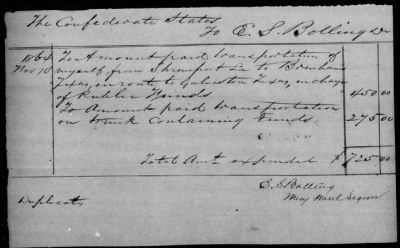 The Confederate States
To E. S. Bolling Dr
1864 To Amount paid transportation of
Nov 10 myself from Shreveport La to Brenham
Texas, en route to Galveston Texas, in charge
of Public Funds 450.00
To Amount paid transportation
on trunk containing Funds 275.00
Total Amt expended $ 725.00
E. S. Bolling
Duplicate